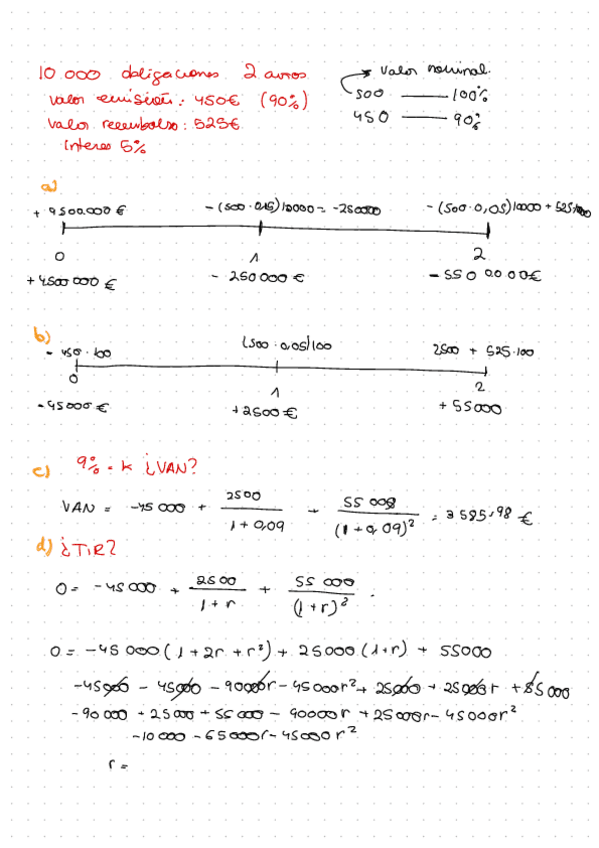 10 000 obligaciones 2 años
valor emisión: 450€ (90%)
valor reembolso: 525€
Interes 5%
valor nominal.
500 — 100%
450 — 90%
a)
+ 4500.000 € - (500·0,05)10000 = -250000 - (500·0,05)10000 + 525·10000
0 1 2
+4500 000 € - 250 000 € - 550 00 00€
b)
- 450·100 (500·0,05)100 2500 + 525·100
0 1 2
-45000 € +2500 € + 55000
c) 9% = k ¿VAN?
VAN = -45 000 + 2500 / 1+0,09 + 55 000 / (1+0,09)² = 3585,98 €
d) ¿TIR?
0 = -45 000 + 2500 / 1+r + 55 000 / (1+r)² .
0 = -45 000 (1+2r+r²) + 25000 (1+r) + 55000
-45000 - 45000 - 90000r - 45000r² + 25000 + 25000r + 55000
-90 000 + 25000 + 55 000 - 90000r + 25000r - 45000r²
-10 000 - 65000r - 45000r²
r =